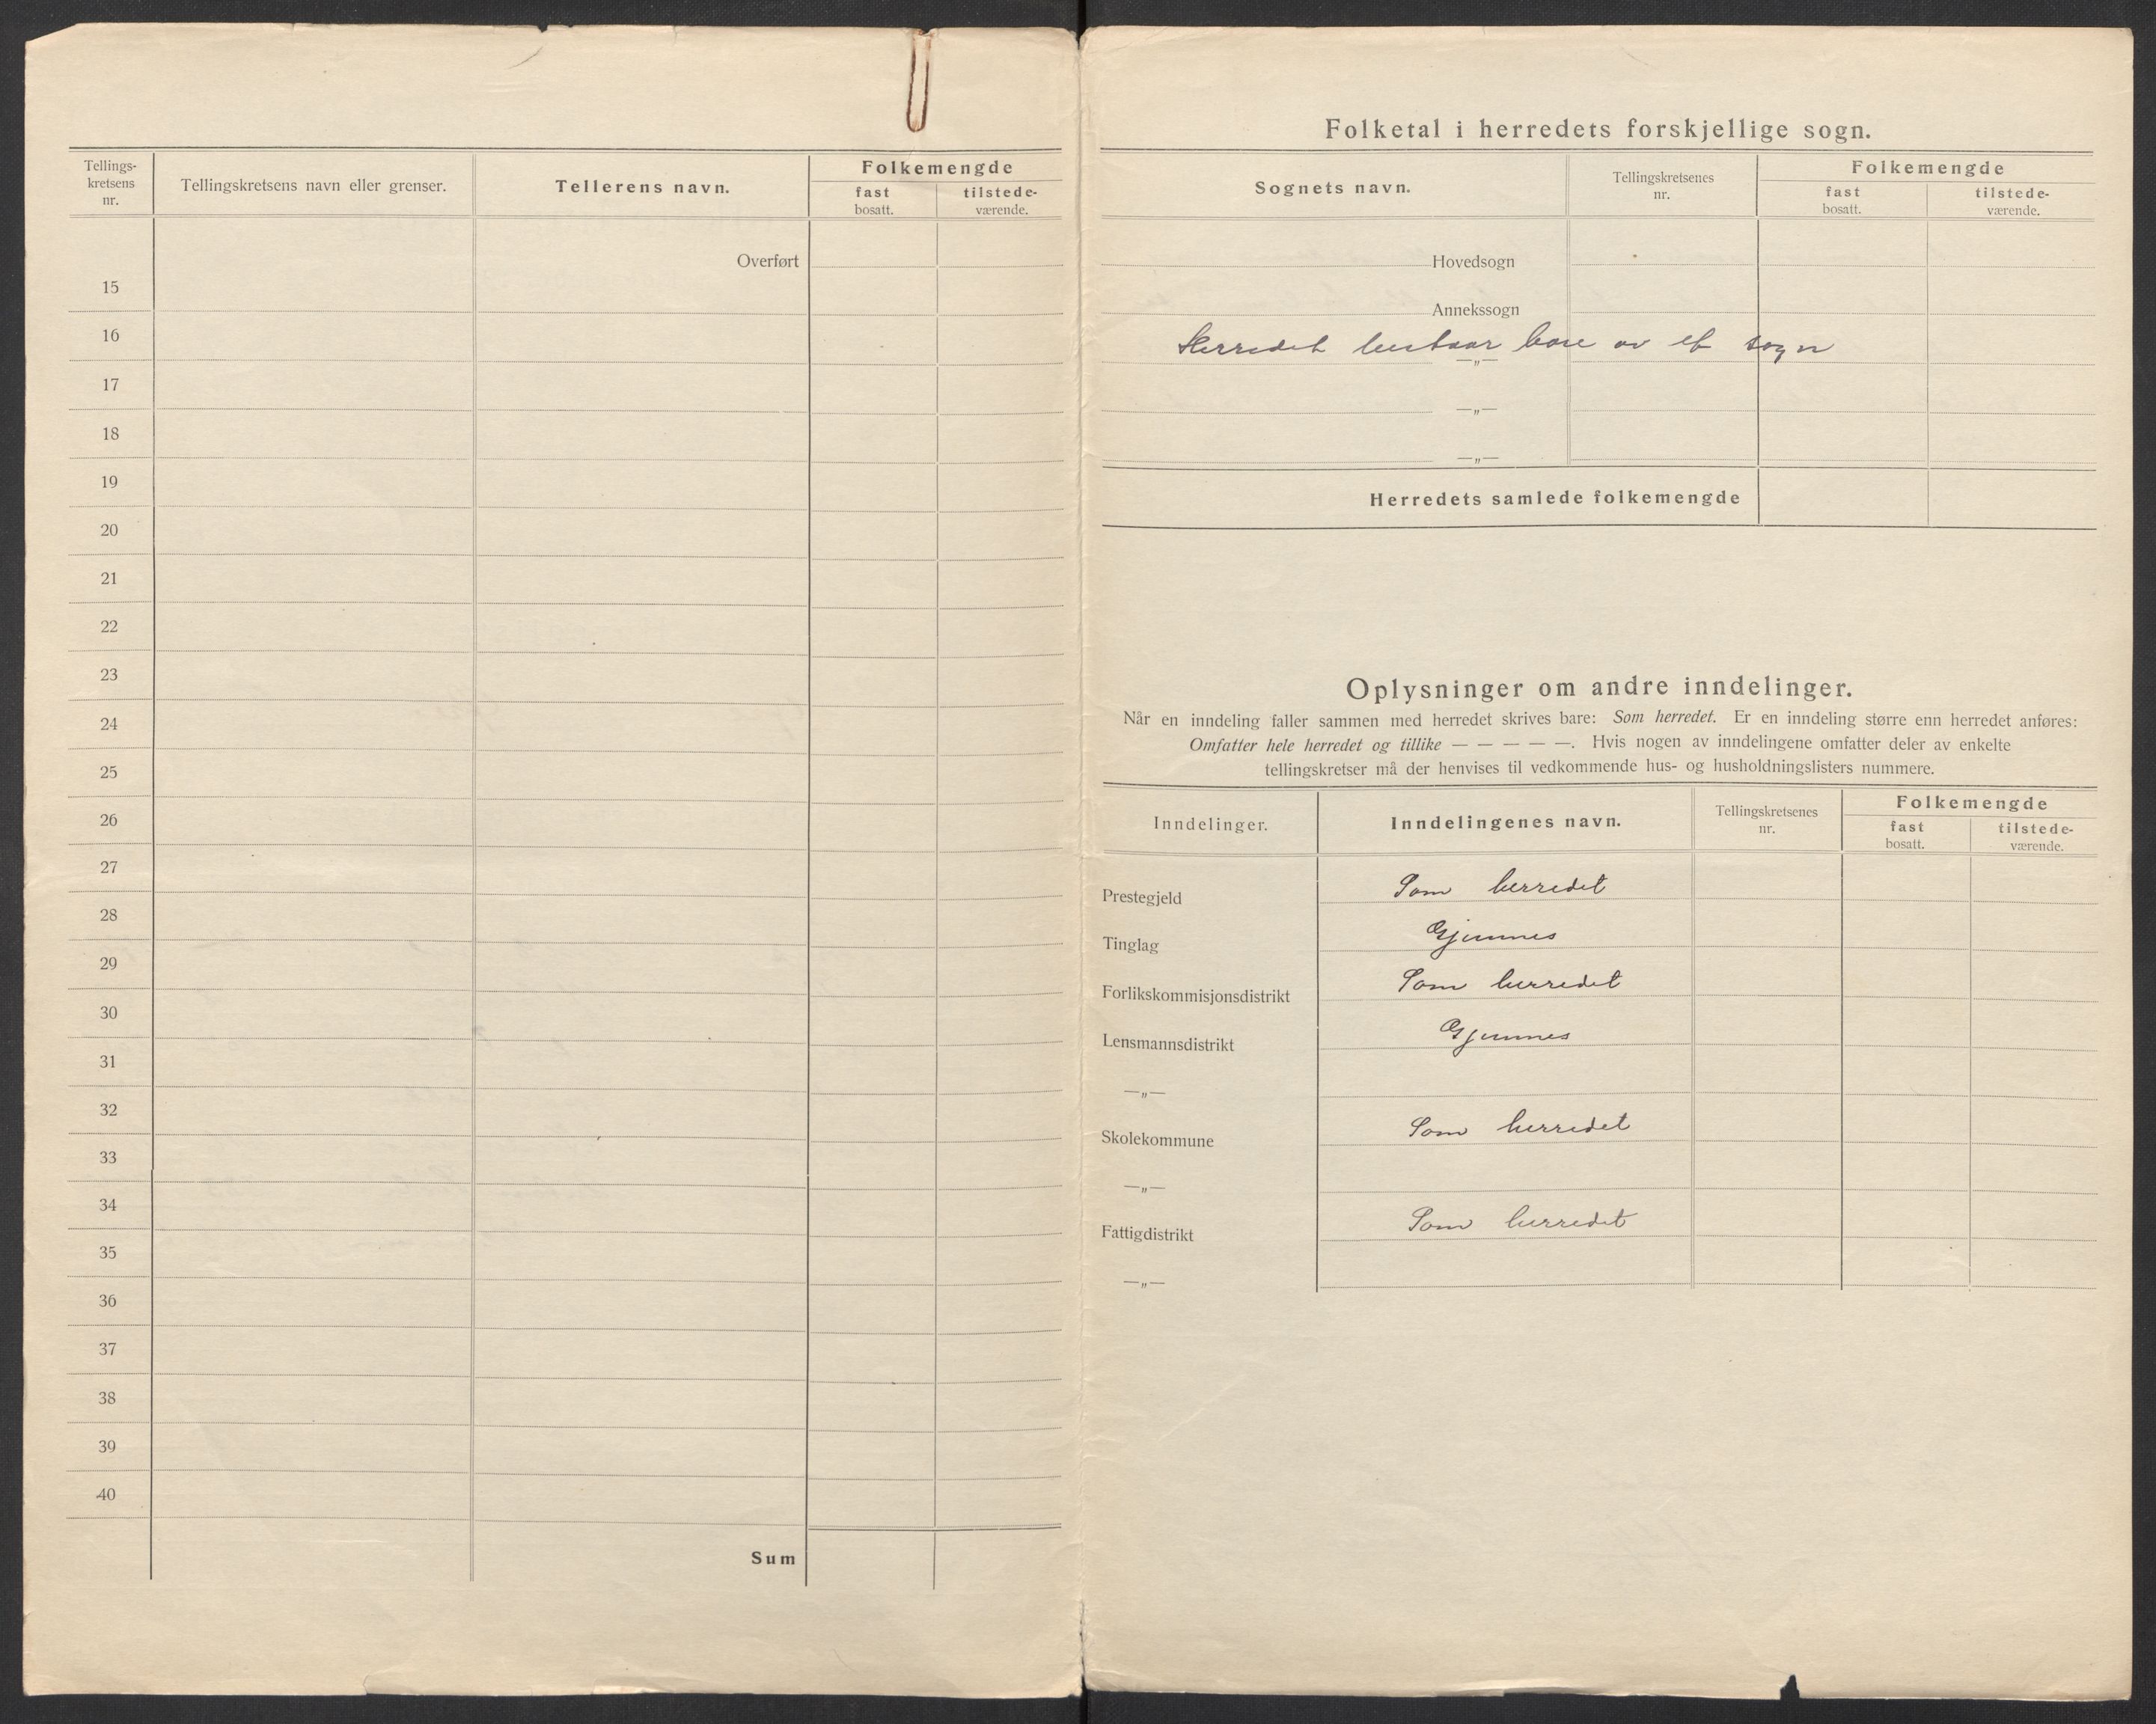 Tellings-
kretsens
nr.
Tellingskretsens navn eller grenser.
Tellerens navn.
Folkemengde
fast
bosatt.
tilstede-
værende.
Overført
15
16
17
18
19
20
21
22
23
24
25
26
27
28
29
30
31
32
33
34
35
36
37
38
39
40
Sum
Folketal i herredets forskjellige sogn.
Sognets navn.
Tellingskretsenes
nr.
Folkemengde
fast
bosatt.
tilstede-
værende.
Hovedsogn
Annekssogn
Herredet bestaar bare av et sogn
—„—
—„—
—„—
Herredets samlede folkemengde
Oplysninger om andre inndelinger.
Når en inndeling faller sammen med herredet skrives bare: Som herredet. Er en inndeling større enn herredet anføres:
Omfatter hele herredet og tillike — — — — —. Hvis nogen av inndelingene omfatter deler av enkelte
tellingskretser må der henvises til vedkommende hus- og husholdningslisters nummere.
Inndelinger.
Inndelingenes navn.
Tellingskretsenes
nr.
Folkemengde
fast
bosatt.
tilstede-
værende.
Prestegjeld Som herredet
Tinglag Gjemnes
Forlikskommisjonsdistrikt Som herredet
Lensmannsdistrikt Gjemnes
—„—
Skolekommune Som herredet
—„—
Fattigdistrikt Som herredet
—„—